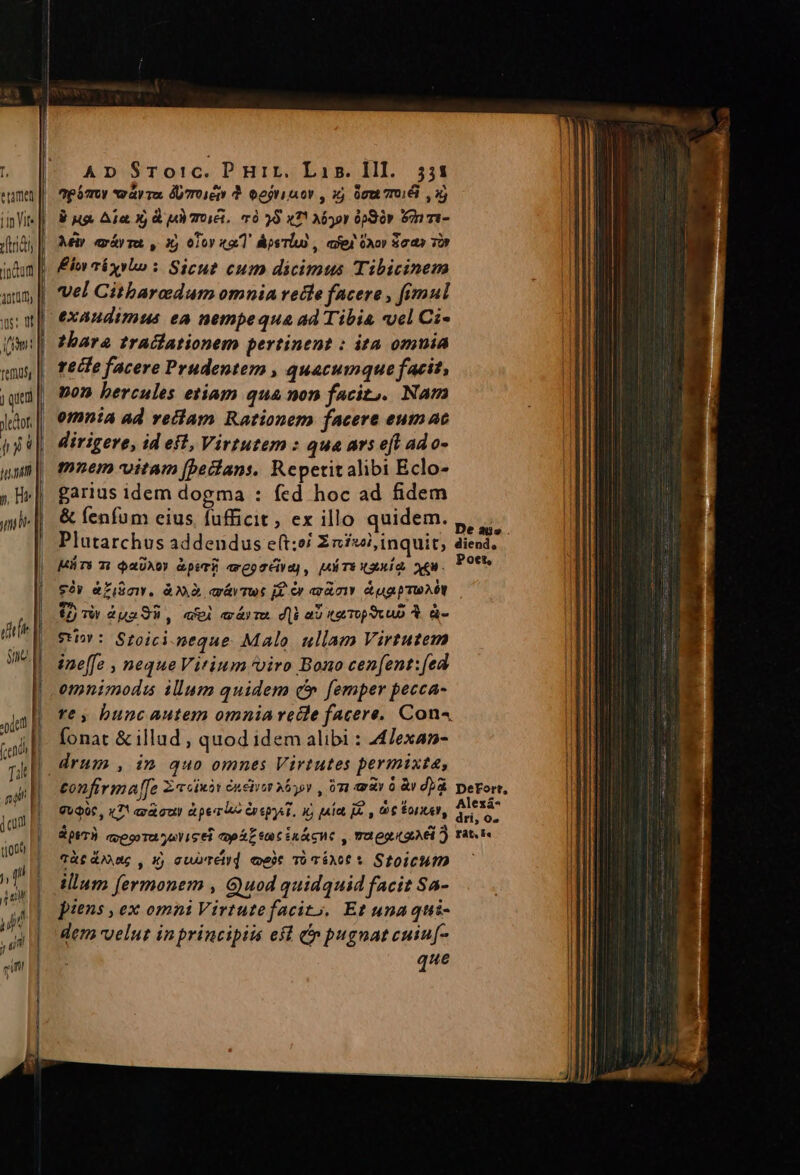 AD STOIC. PHIL. LIB. III. 331
τρόπον πάντα εὖ ποιεῖν τ φρόνιμον, καὶ ὅσα ποιεῖ, καὶ
οὐ μα Δία καὶ ἃ μὴ ποιεῖ. τὸ γὸ κτ λόγον ὀρθὸν ἐπιτε-
λεῖν πάντα, καὶ οἷον κατ' ἀρετὴν, περὶ ὅλον οὖσαν τὸν
βίον τέχνην: Sicut cum dicimus Tibicinem
vel Citharœdum omnia recte facere, simul
exaudimus ea nempe qua ad Tibia vel Ci-
thara tractationem pertinent : ita omnia
recte facere Prudentem, quacumque facit,
non hercules etiam qua non facit. Nam
omnia ad rectam Rationem facere eum ac
dirigere, id est, Virtutem : qua ars est ad o-
mnem vitam spectans. Repetit alibi Eclo-
garius idem dogma : sed hoc ad fidem
& sensum eius sufficit, ex illo quidem.
Plutarchus addendus est: οἱ Στωϊκοὶ, inquit,
μήτε τι φαῦλον ἀρετῇ προσεῖναι, μήτε κακίᾳ χρη-
στὸν ἀξιῶσιν. ἀλλὰ πάντως μὲν ἐν πᾶσιν ἁμαρτωλὸν
εἶναι τὸν ἀμαθῆ, περὶ πάντα δὲ αὖ κατορθοῦν τ ἀ-
στεῖον: Stoici neque Malo ullam Virtutem
inesse, neque Vitium viro Bono censent: sed
omnimodis illum quidem & semper pecca-
re, hunc autem omnia recte facere. Con-
sonat & illud, quod idem alibi : Alexan-
drum, in quo omnes Virtutes permixta,
confirmasse Στοϊκὸν ἐκεῖνον λόγον, ὅτι πᾶν ὃ ἂν δρᾷ
σοφὸς, κτ πᾶσαν ἀρετὴν ἐνεργεῖ, καὶ μία μὲν, ὡς ἔοικεν,
ἀρετὴ πρωταγωνιστεῖ πράξεως ἑκάστης, παρακαλεῖ δὲ
τὰς ἄλλας, καὶ συντείνει πρὸς τὸ τέλος: Stoicum
illum sermonem, Quod quidquid facit Sa-
piens, ex omni Virtute facit. Et una qui-
dem velut in principiis est & pugnat cuius-
que
De aud.
diend.
Poet.
De Fort.
Alexā-
dri, o-
rat. 1.